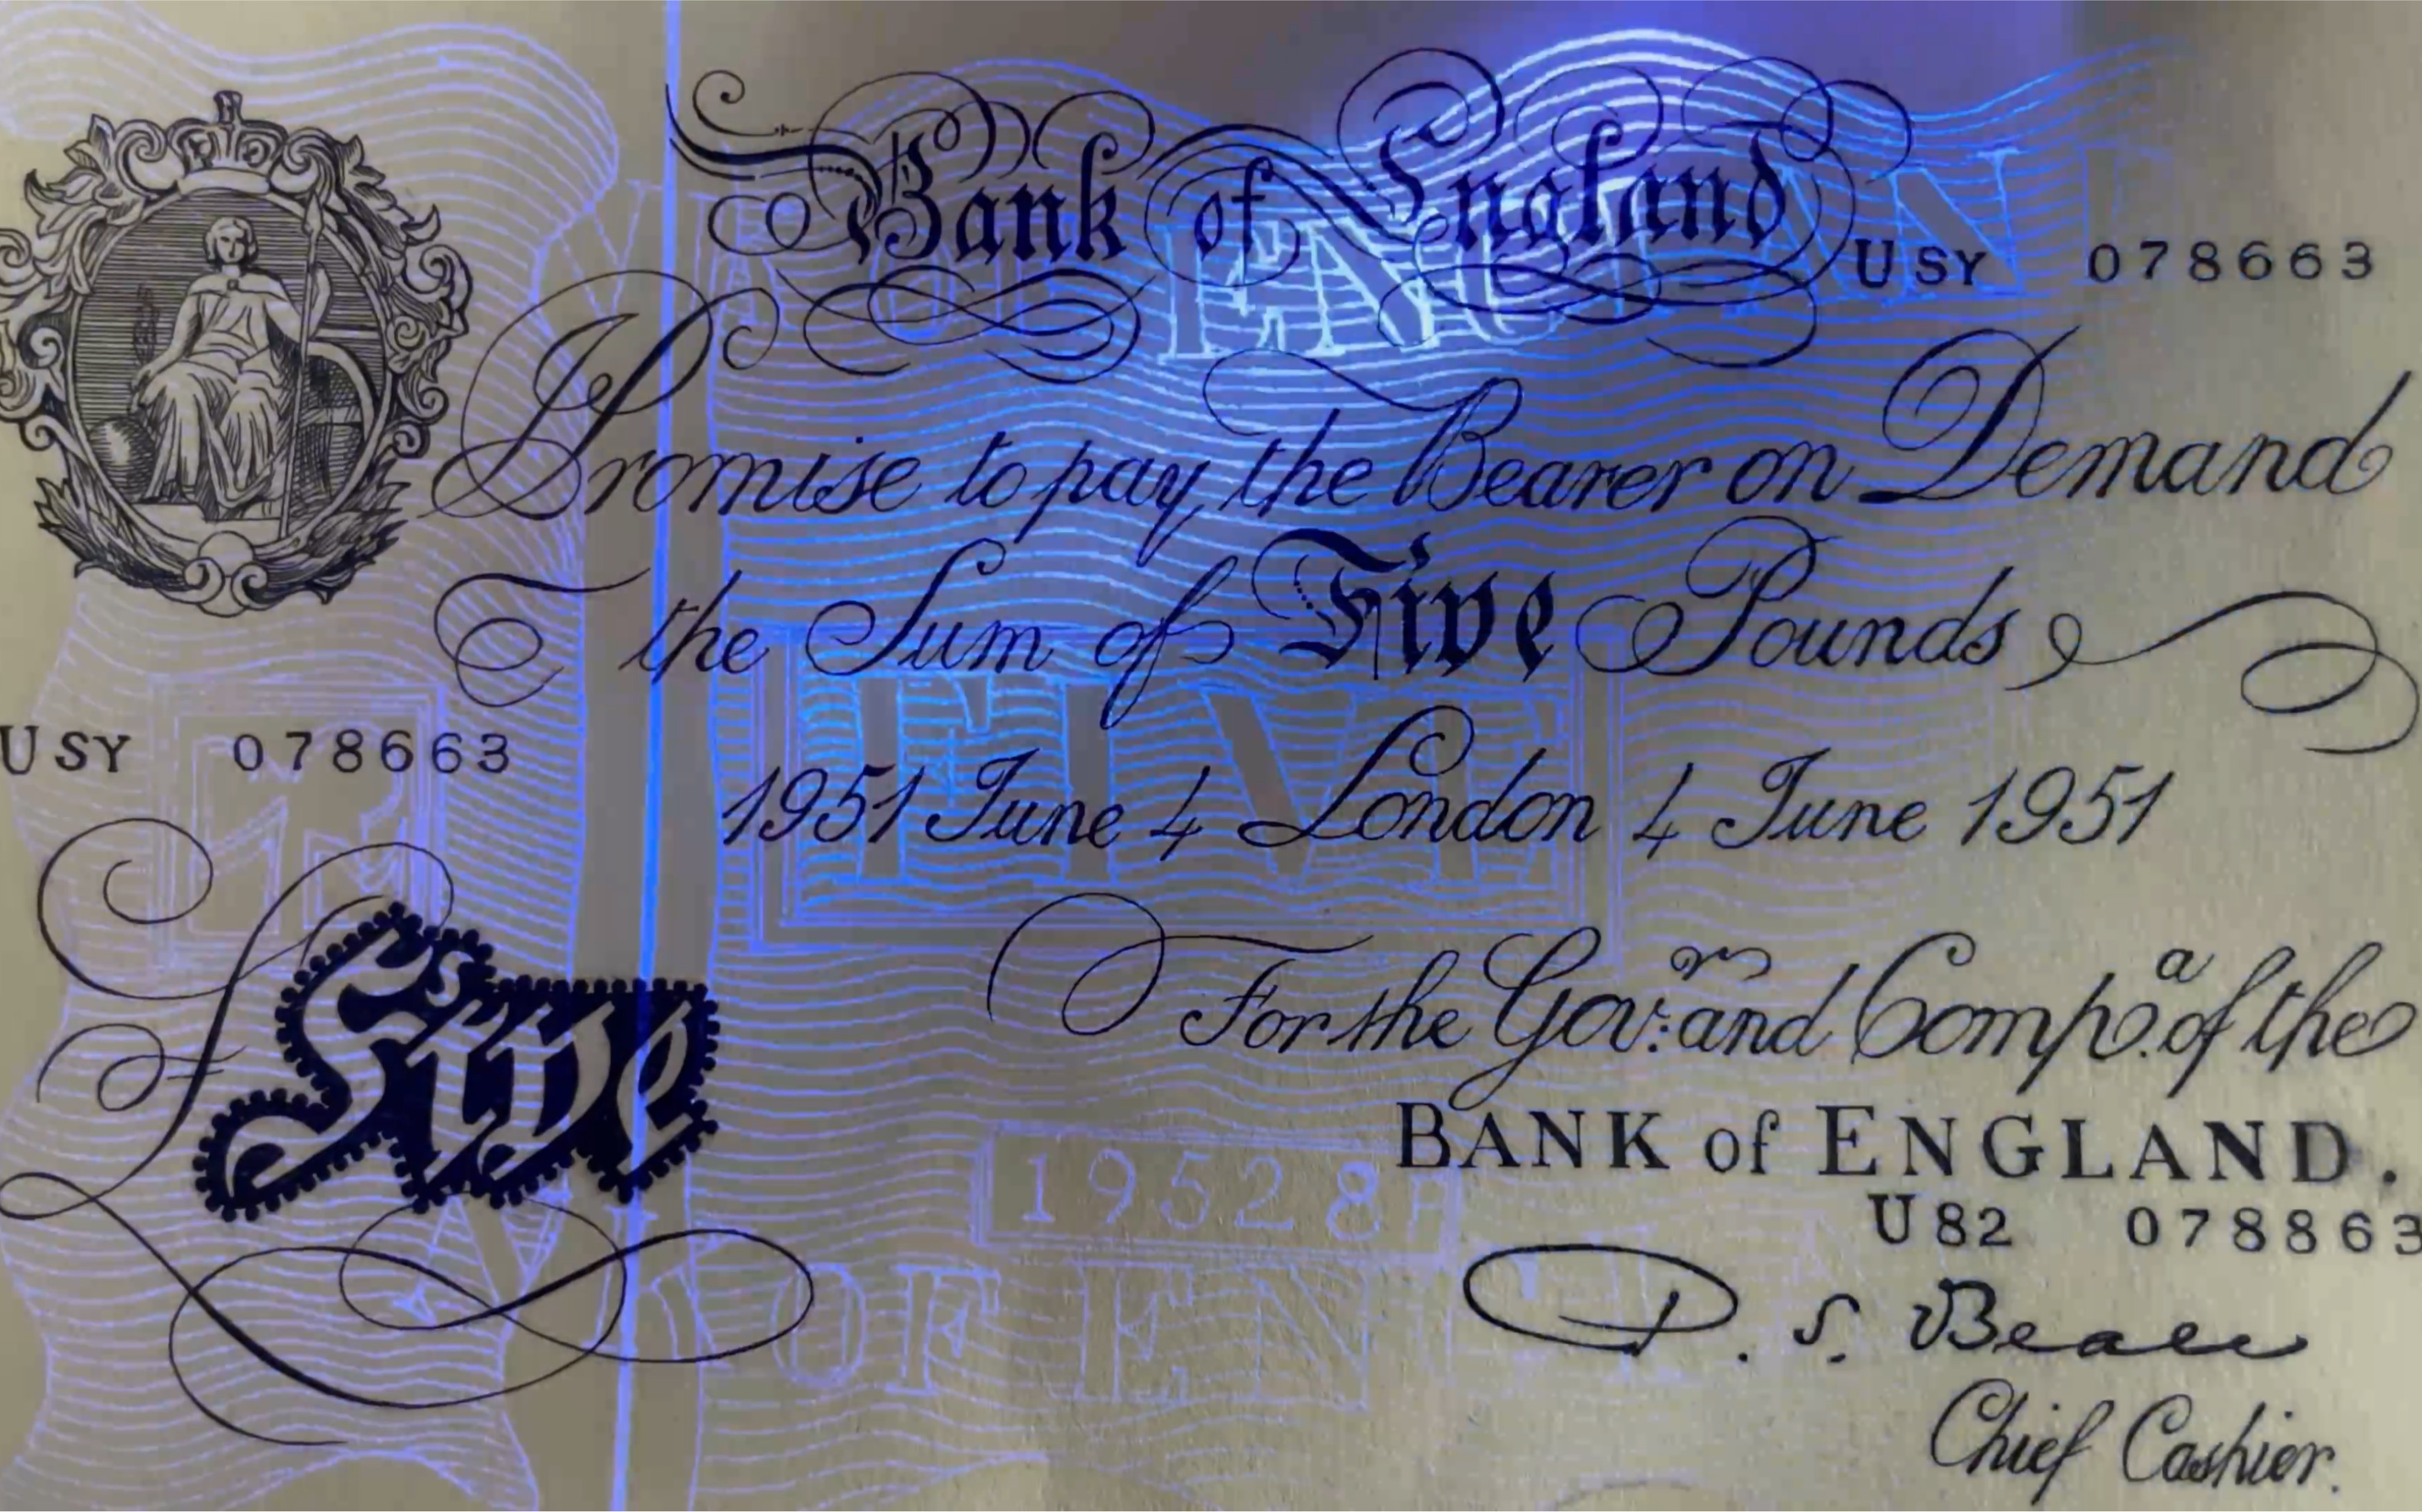 Bank of England
USY 078663
I Promise to pay the Bearer on Demand
the Sum of Five Pounds
USY 078663
1951 June 4 London 4 June 1951
FIVE
For the Gov:r and Comp.a of the
BANK of ENGLAND.
£ Five
19528
U82 078863
OF EN
P. S. Beale
Chief Cashier.